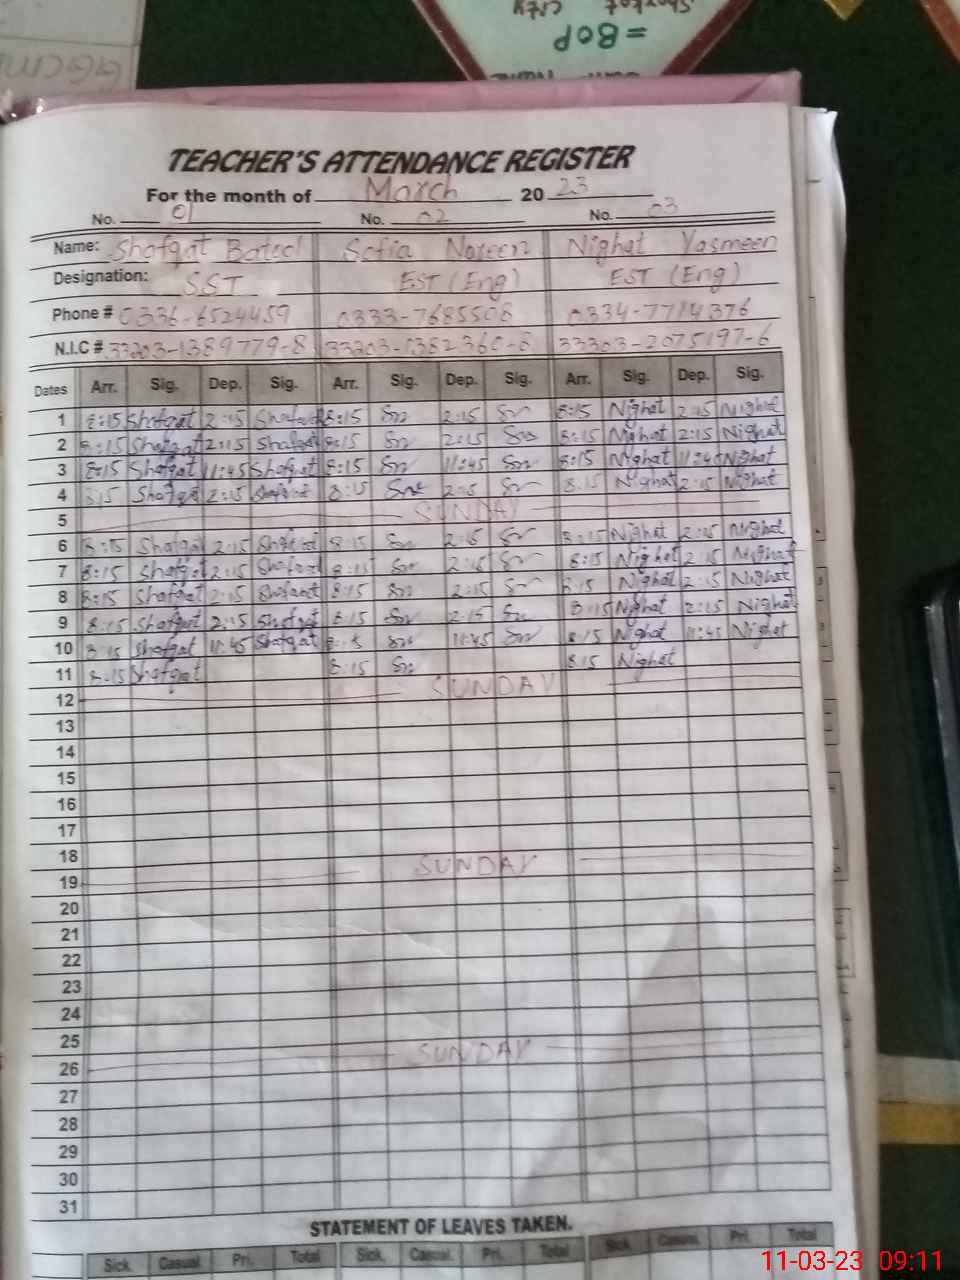 Shorkot city
= BOP
TEACHER'S ATTENDANCE REGISTER
For the month of March 20 23
No. 01 No. 02 No. 03
Name: Shafqat Batool Sofia Noreen Nighat Yasmeen
Designation: SST EST (Eng) EST (Eng)
Phone # 0336-6524459 0333-7685508 0334-7714376
N.I.C # 33203-1389779-8 33303-2075197-6
Dates Arr. Sig. Dep. Sig. Arr. Sig. Dep. Sig. Arr. Sig. Dep. Sig.
1 8:15 Shafqat 2:15 Shafqat 8:15 Sn 2:15 Sn 8:15 Nighat 2:15 Nighat
2 8:15 Shafqat 2:15 Shafqat 8:15 Sn 2:15 Sn 8:15 Nighat 2:15 Nighat
3 8:15 Shafqat 11:45 Shafqat 8:15 Sn 11:45 Sn 8:15 Nighat 11:45 Nighat
4 8:15 Shafqat 2:15 Shafqat 8:15 Sn 2:15 Sn 8:15 Nighat 2:15 Nighat
5 SUNDAY
6 8:15 Shafqat 2:15 Shafqat 8:15 Sn 2:15 Sn 8:15 Nighat 2:15 Nighat
7 8:15 Shafqat 2:15 Shafqat 8:15 Sn 2:15 Sn 8:15 Nighat 2:15 Nighat
8 8:15 Shafqat 2:15 Shafqat 8:15 Sn 2:15 Sn 8:15 Nighat 2:15 Nighat
9 8:15 Shafqat 2:15 Shafqat 8:15 Sn 2:15 Sn 8:15 Nighat 2:15 Nighat
10 8:15 Shafqat 11:45 Shafqat 8:15 Sn 11:45 Sn 8:15 Nighat 11:45 Nighat
11 8:15 Shafqat 8:15 Sn 8:15 Nighat
12 SUNDAY
13
14
15
16
17
18
19 SUNDAY
20
21
22
23
24
25
26 SUNDAY
27
28
29
30
31
STATEMENT OF LEAVES TAKEN.
Sick Casual Pri. Total Sick. Casual. Pri. Total Sick Casual Pri. Total
11-03-23 09:11